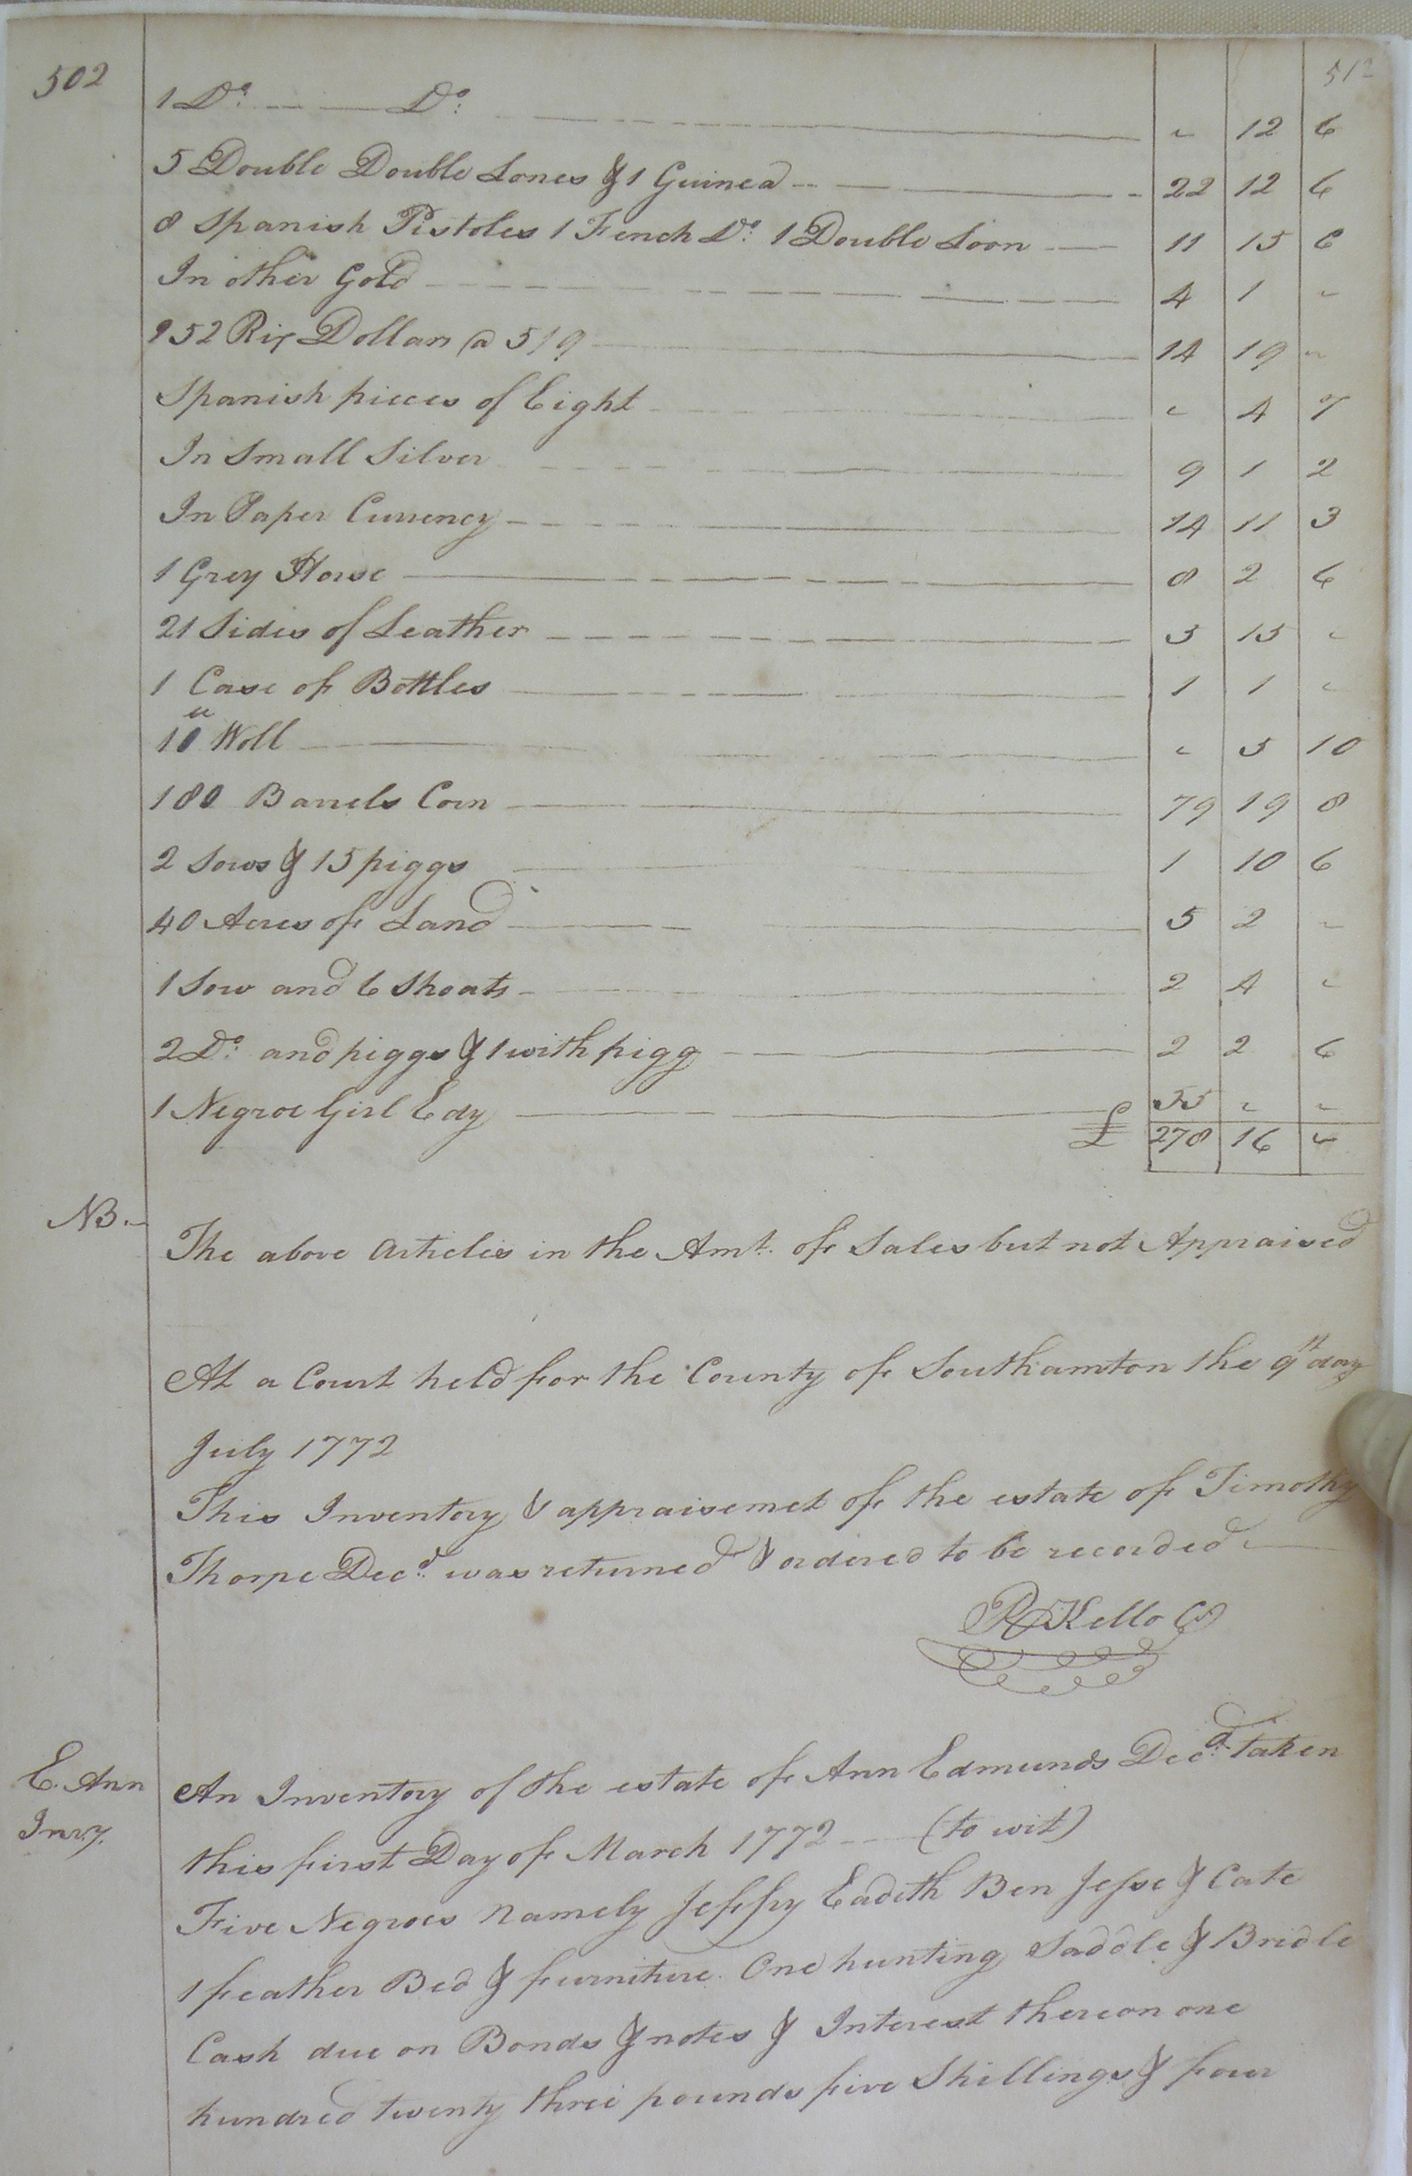 502
512
1 Do. Do. " 12 6
5 Double Double Lones & 1 Guinea 22 12 6
8 Spanish Pistoles 1 Fench Do. 1 Double Loon 11 15 6
In other Gold 4 1 "
52 Rix Dollars @ 5/9 14 19 "
Spanish pieces of Eight " 4 7
In Small Silver 9 1 2
In Paper Currency 14 11 3
1 Grey Horse 8 2 6
21 Sides of Leather 3 15 "
1 Case of Bottles 1 1 "
10 Woll " 5 10
180 Barrels Corn 79 19 8
2 Sows & 15 piggs 1 10 6
40 Acres of Land 5 2 "
1 Sow and 6 Shoats 2 4 "
2 Do. and piggs & 1 with pigg 2 2 6
1 Negroe Girl Edy 55 " "
£ 278 16 "
NB. The above Articles in the Amt. of Sales but not Appraised
At a Court held for the County of Southamton the 9th day
July 1772
This Inventory & appraisemet of the estate of Timothy
Thorpe Decd. was returned & ordered to be recorded
R Kello C
E. Ann An Inventory of the estate of Ann Edmunds Decd. taken
Invy. this first Day of March 1772 (to wit)
Five Negroes Namely Jeffry Eadith Ben Jesse & Cate
1 feather Bed & furniture. One hunting Saddle & Bridle
Cash due on Bonds & notes & Interest thereon one
hundred twenty three pounds five Shillings & four